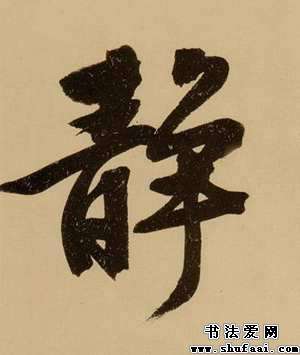 靜
书法爱网
www.shufaai.com